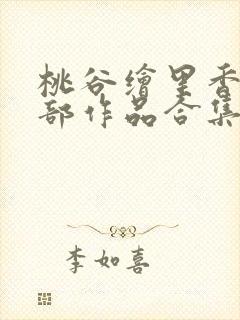 桃谷繪里香
部作品合集
李如喜